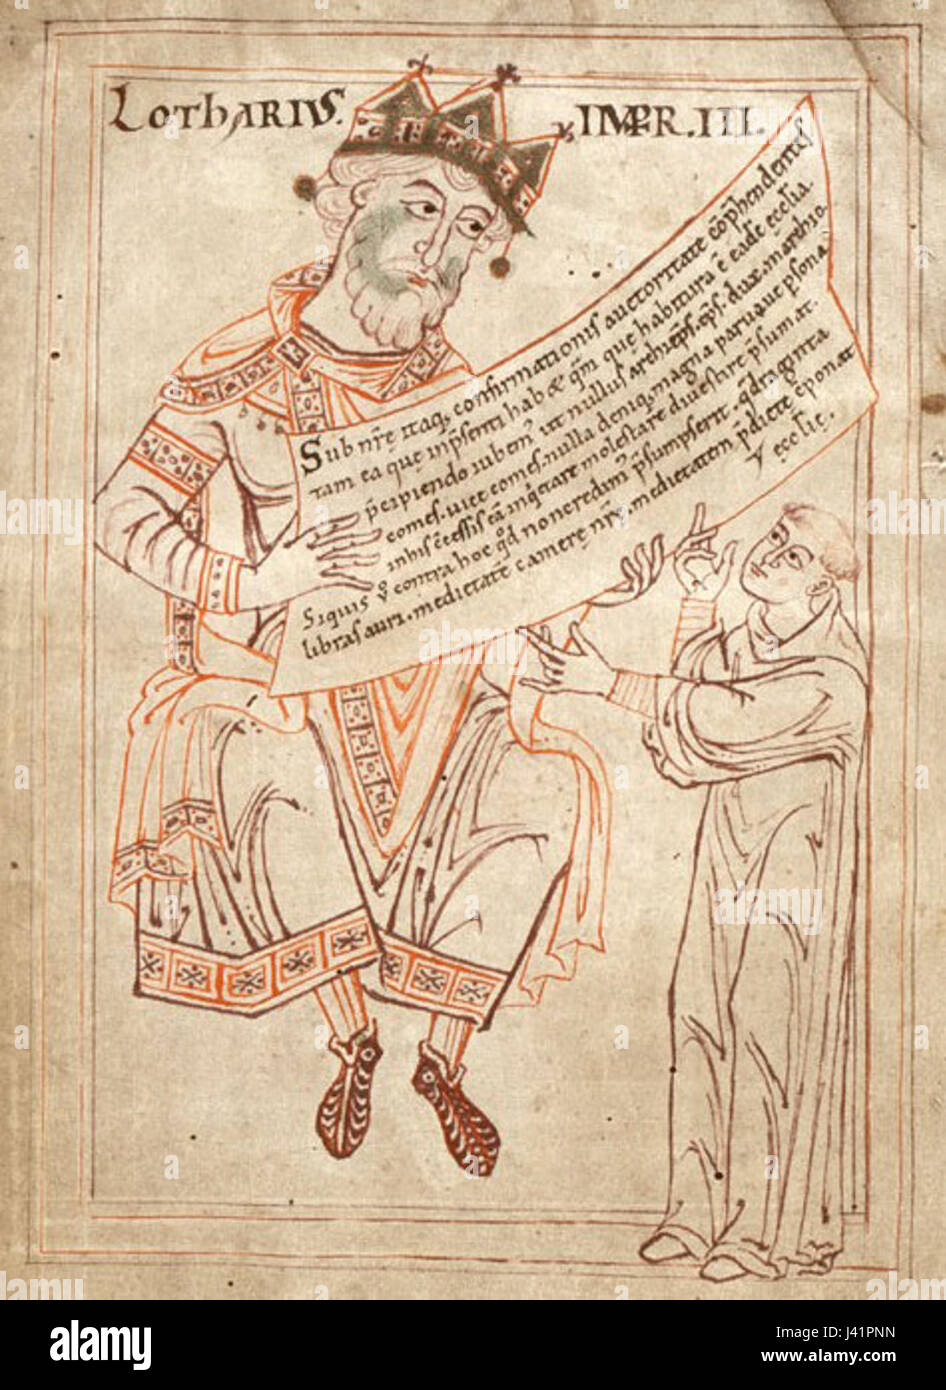 LOTHARIUS. IMPR. III.
Sub nr̄e itaq; confirmationis auctoritate cōp̄hendentes
tam ea que inp̄senti habet q̄m que habitura ē eadē ecclia.
p̄cipiendo iubem' ut nullus archiep̄s. ep̄s. dux. marchio.
comes. uicecomes. nulla deniq; magna paruaque p̄sona
in his c̄cessis eā inq̄etare molestare diuestire p̄sumat.
Siquis v̄ contra hoc qd̄ non credim' p̄sumpserit. q̄draginta
libras auri. medietatē camerę nr̄ę. medietatem p̄dictę cōponat
ęcclię.
alamy
Image ID: J41PNN
www.alamy.com